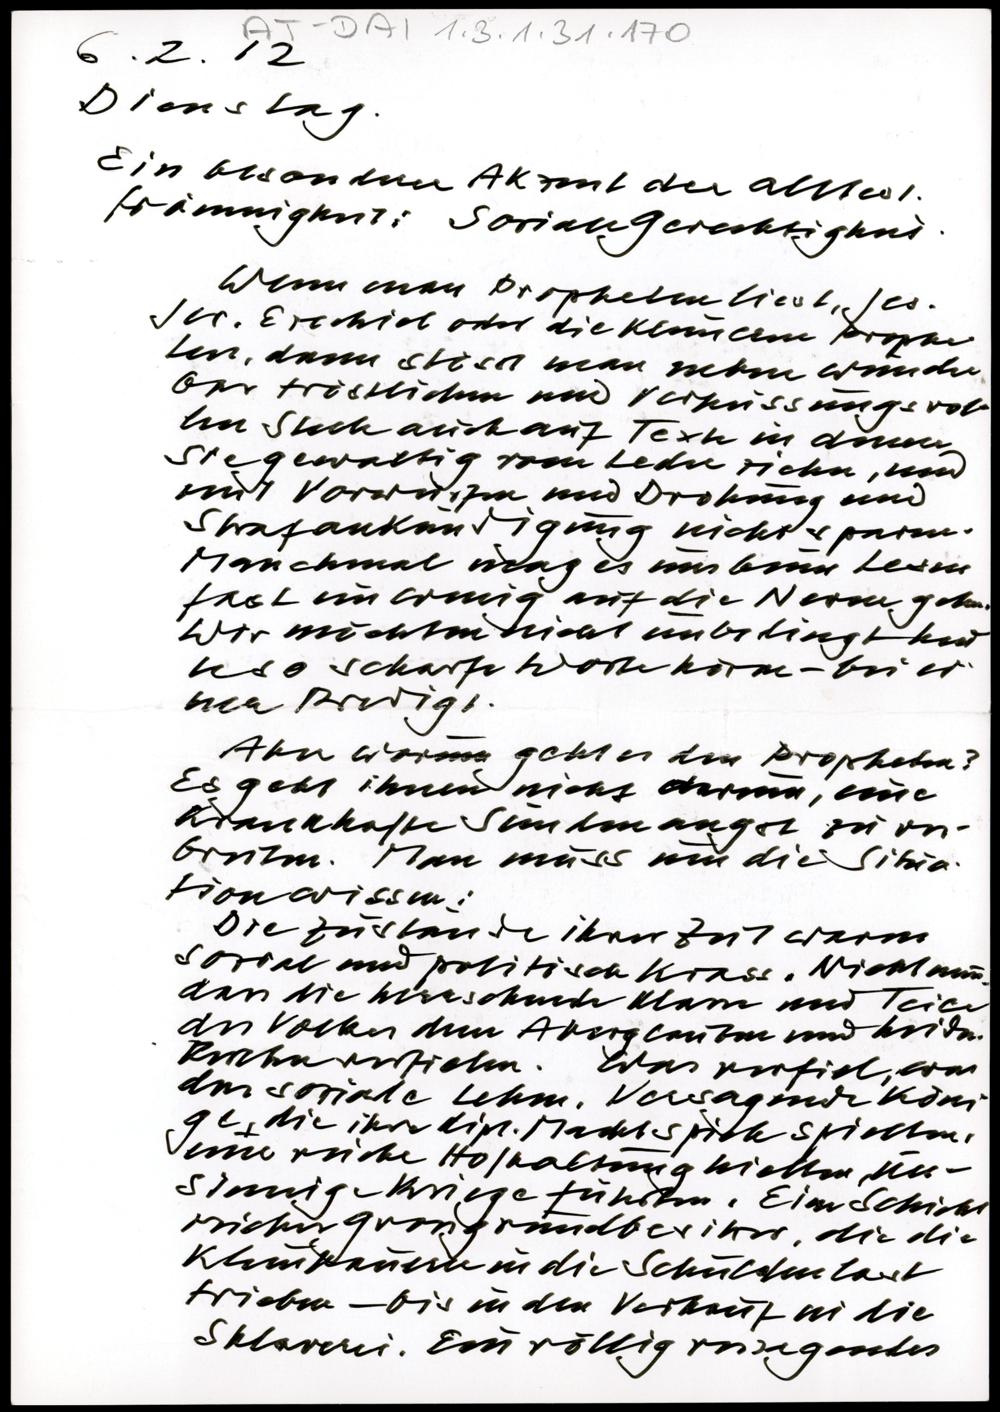 AT-DAI 1.3.1.31.170
6.2.12
Dienstag.
Ein besonderer Akzent der alttest.
Frömmigkeit: Soziale Gerechtigkeit.
Wenn man Propheten liest, Jes.
Jer. Ezechiel oder die kleineren Prophe
ten, dann stösst man neben wunder
bar tröstlichen und Verheissungsvol
len Stellen auch auf Texte in denen
Sie gewaltig vom Leder ziehen, und
mit Vorwürfen und Drohung und
Strafankündigung nicht sparen.
Manchmal mag es uns beim Lesen
fast ein wenig auf die Nerven gehen.
Wir möchten nicht unbedingt heu
te so scharfe Worte hören – bei ei
ner Predigt.
Aber warum geht es den Propheten?
Es geht ihnen nicht darum, eine
Krankhafte Sündenangst zu ver-
breiten. Man muss um die Situa
tion wissen:
Die Zustände ihrer Zeit waren
sozial und politisch krass. Nicht nur,
dass die herrschende Klasse und Teile
des Volkes dem Aberglauben und heidn.
Kulten verfielen. Was verfiel, war
das soziale Leben. Versagende Köni
ge, die ihre dipl. Machtspiele spielten,
eine reiche Hofhaltung hielten, un-
sinnige Kriege führten. Eine Schicht
reicher Grossgrundbesitzer, die die
Kleinbauern in die Schuldenlast
trieben – bis in den Verkauf in die
Sklaverei. Ein völlig versagendes